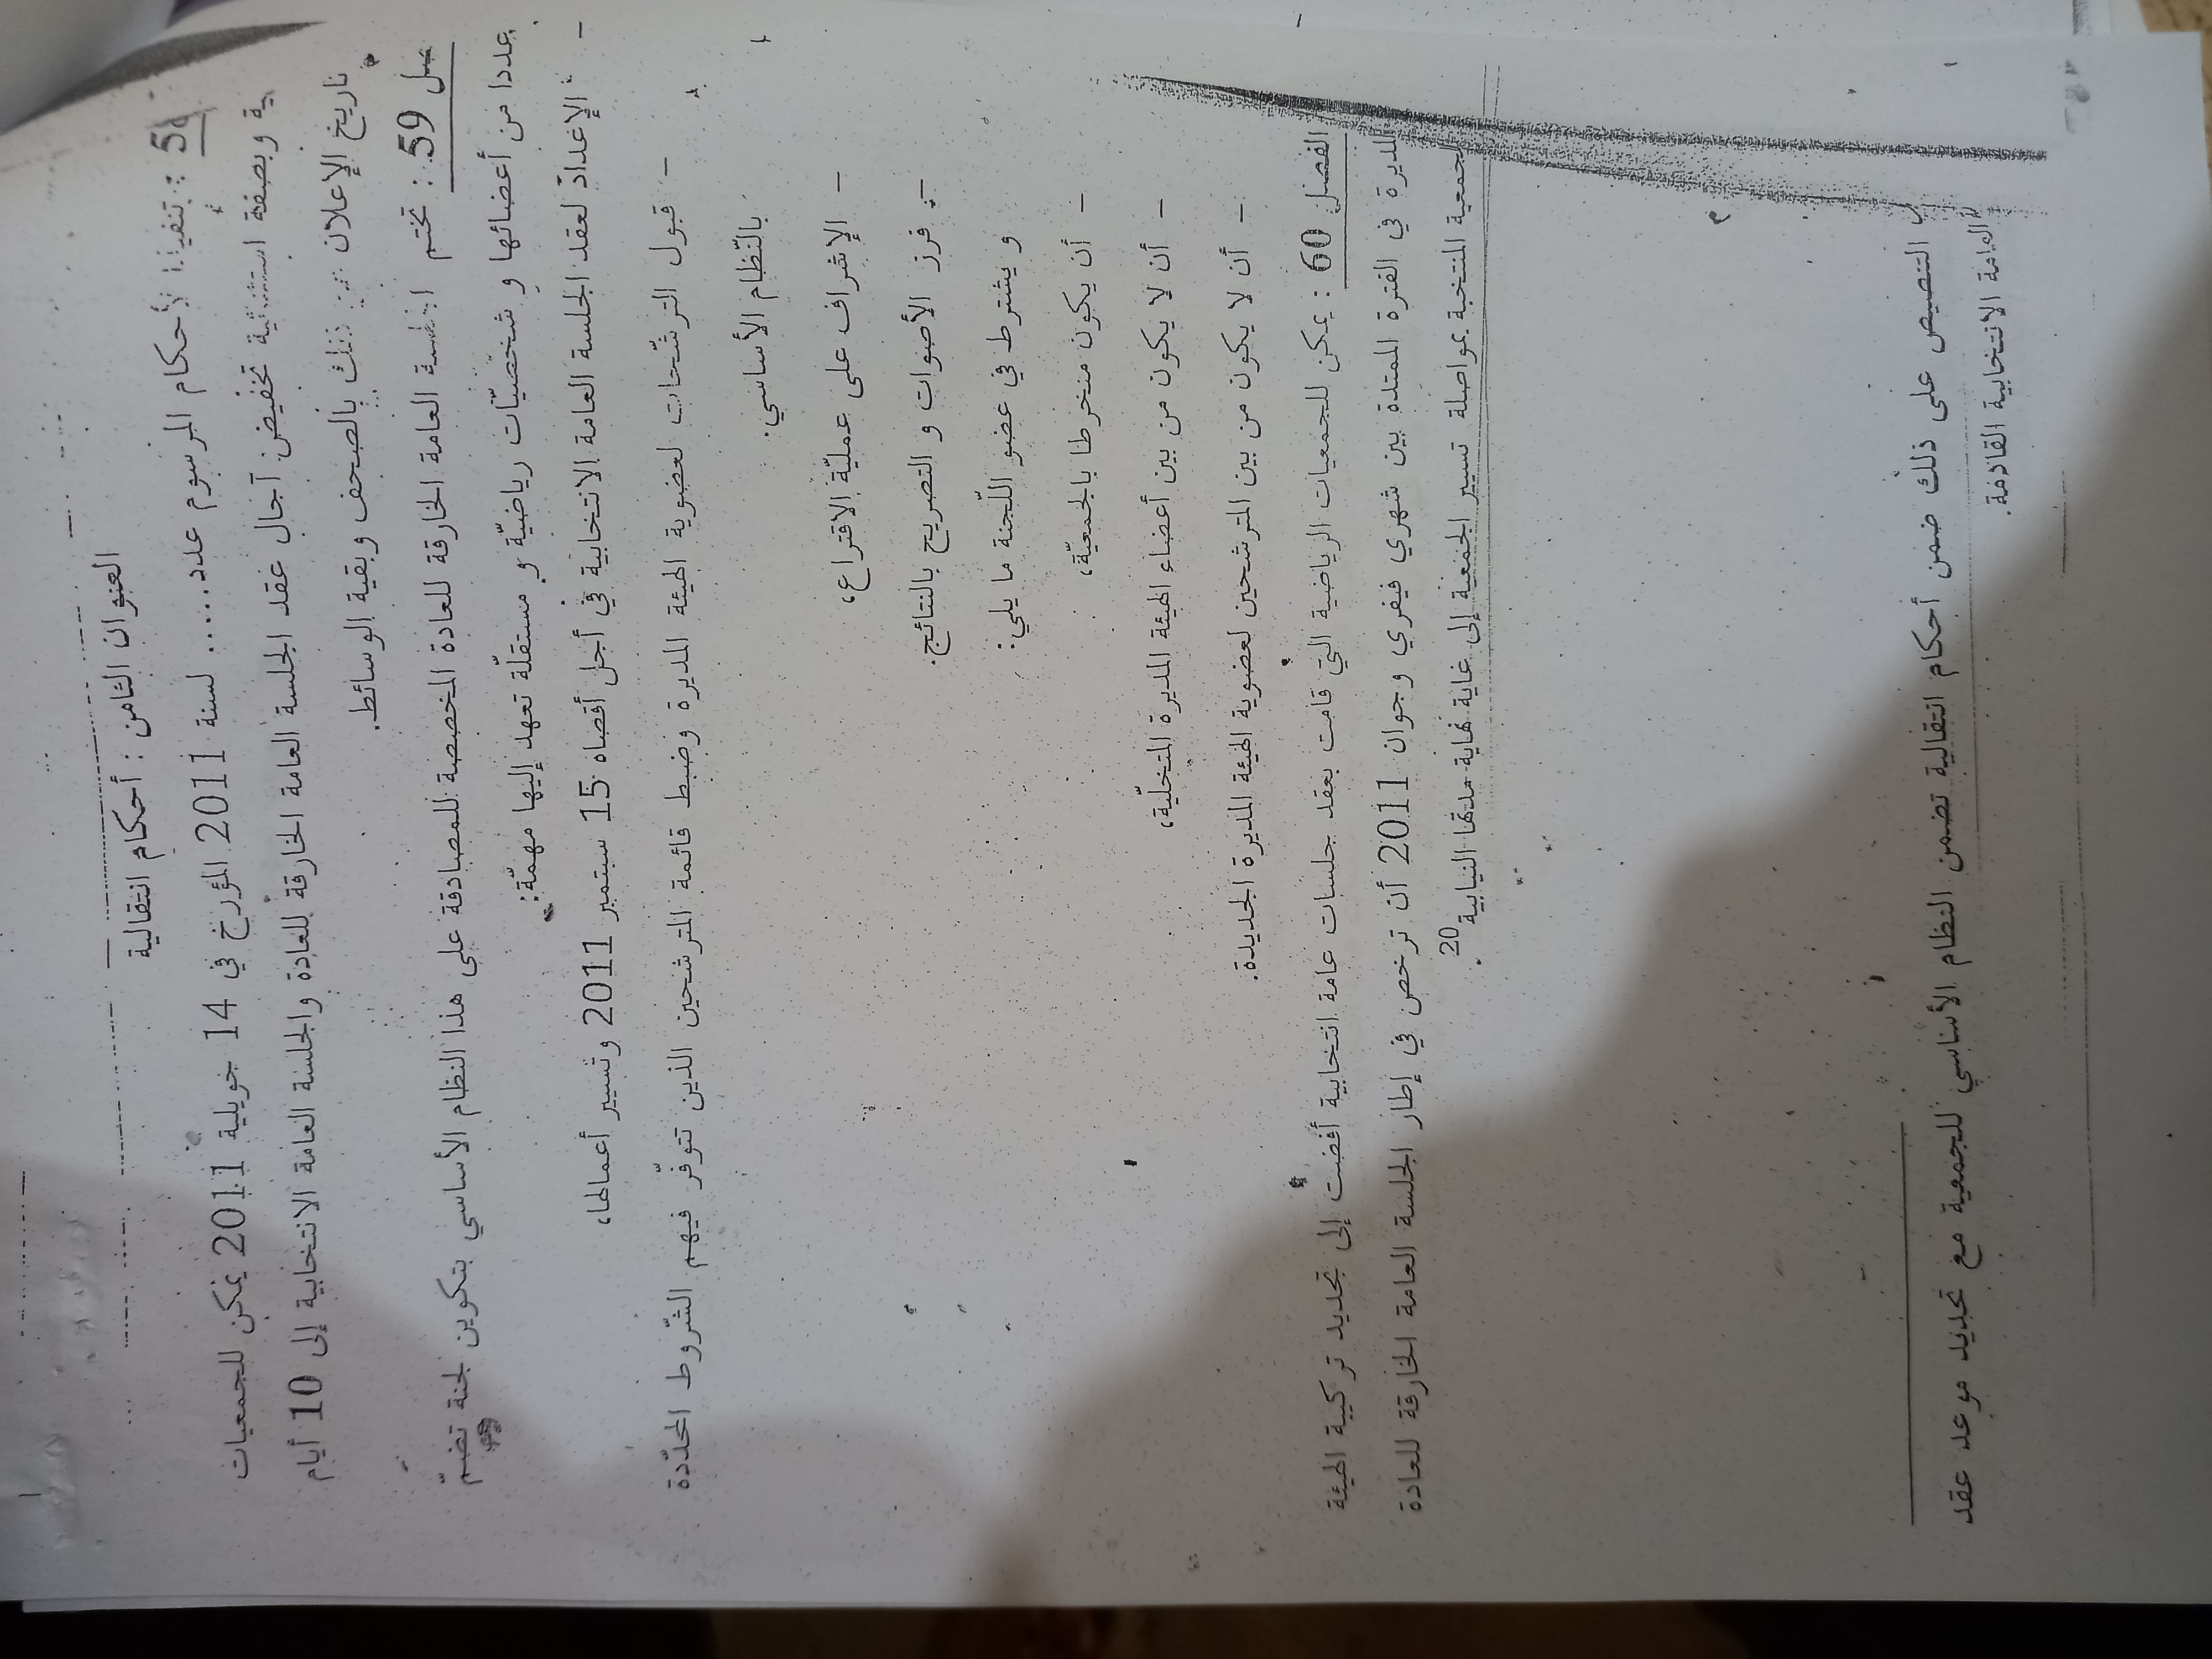 العنوان الثامن : أحكام انتقالية
: تنفيذا لأحكام المرسوم عدد...... لسنة 2011 المؤرخ في 14 جويلية 2011 يمكن للجمعيات
وبصفة استثنائية تخفيض آجال عقد الجلسة العامة الخارقة للعادة والجلسة العامة الانتخابية إلى 10 أيام
تاريخ الإعلان عن ذلك بالصحف وبقية الوسائط.
59 : تختم الجلسة العامة الخارقة للعادة المخصصة للمصادقة على هذا النظام الأساسي بتكوين لجنة تضمّ
عددا من أعضائها و شخصيّات رياضيّة و مستقلّة تعهد إليها مهمّة:
- الإعداد لعقد الجلسة العامة الانتخابية في أجل أقصاه 15 سبتمبر 2011 وتسيير أعمالها،
- قبول الترشّحات لعضوية الهيئة المديرة وضبط قائمة المترشحين الذين تتوفّر فيهم الشّروط المحدّدة
بالنّظام الأساسي.
- الإشراف على عمليّة الاقتراع،
- فرز الأصوات و التصريح بالنتائج.
و يشترط في عضو اللّجنة ما يلي:
- أن يكون منخرطا بالجمعيّة،
- أن لا يكون من بين أعضاء الهيئة المديرة المتخلّية،
- أن لا يكون من بين المترشحين لعضوية الهيئة المديرة الجديدة.
الفصل 60 : يمكن للجمعيات الرياضية التي قامت بعقد جلسات عامة انتخابية أفضت إلى تجديد تركيبة الهيئة
المديرة في الفترة الممتدة بين شهري فيفري وجوان 2011 أن ترخص في إطار الجلسة العامة الخارقة للعادة
للجمعية المنتخبة بمواصلة تسيير الجمعية إلى غاية نهاية مدتها النيابية 20.
التنصيص على ذلك ضمن أحكام انتقالية تضمن النظام الأساسي للجمعية مع تحديد موعد عقد
العامة الانتخابية القادمة.